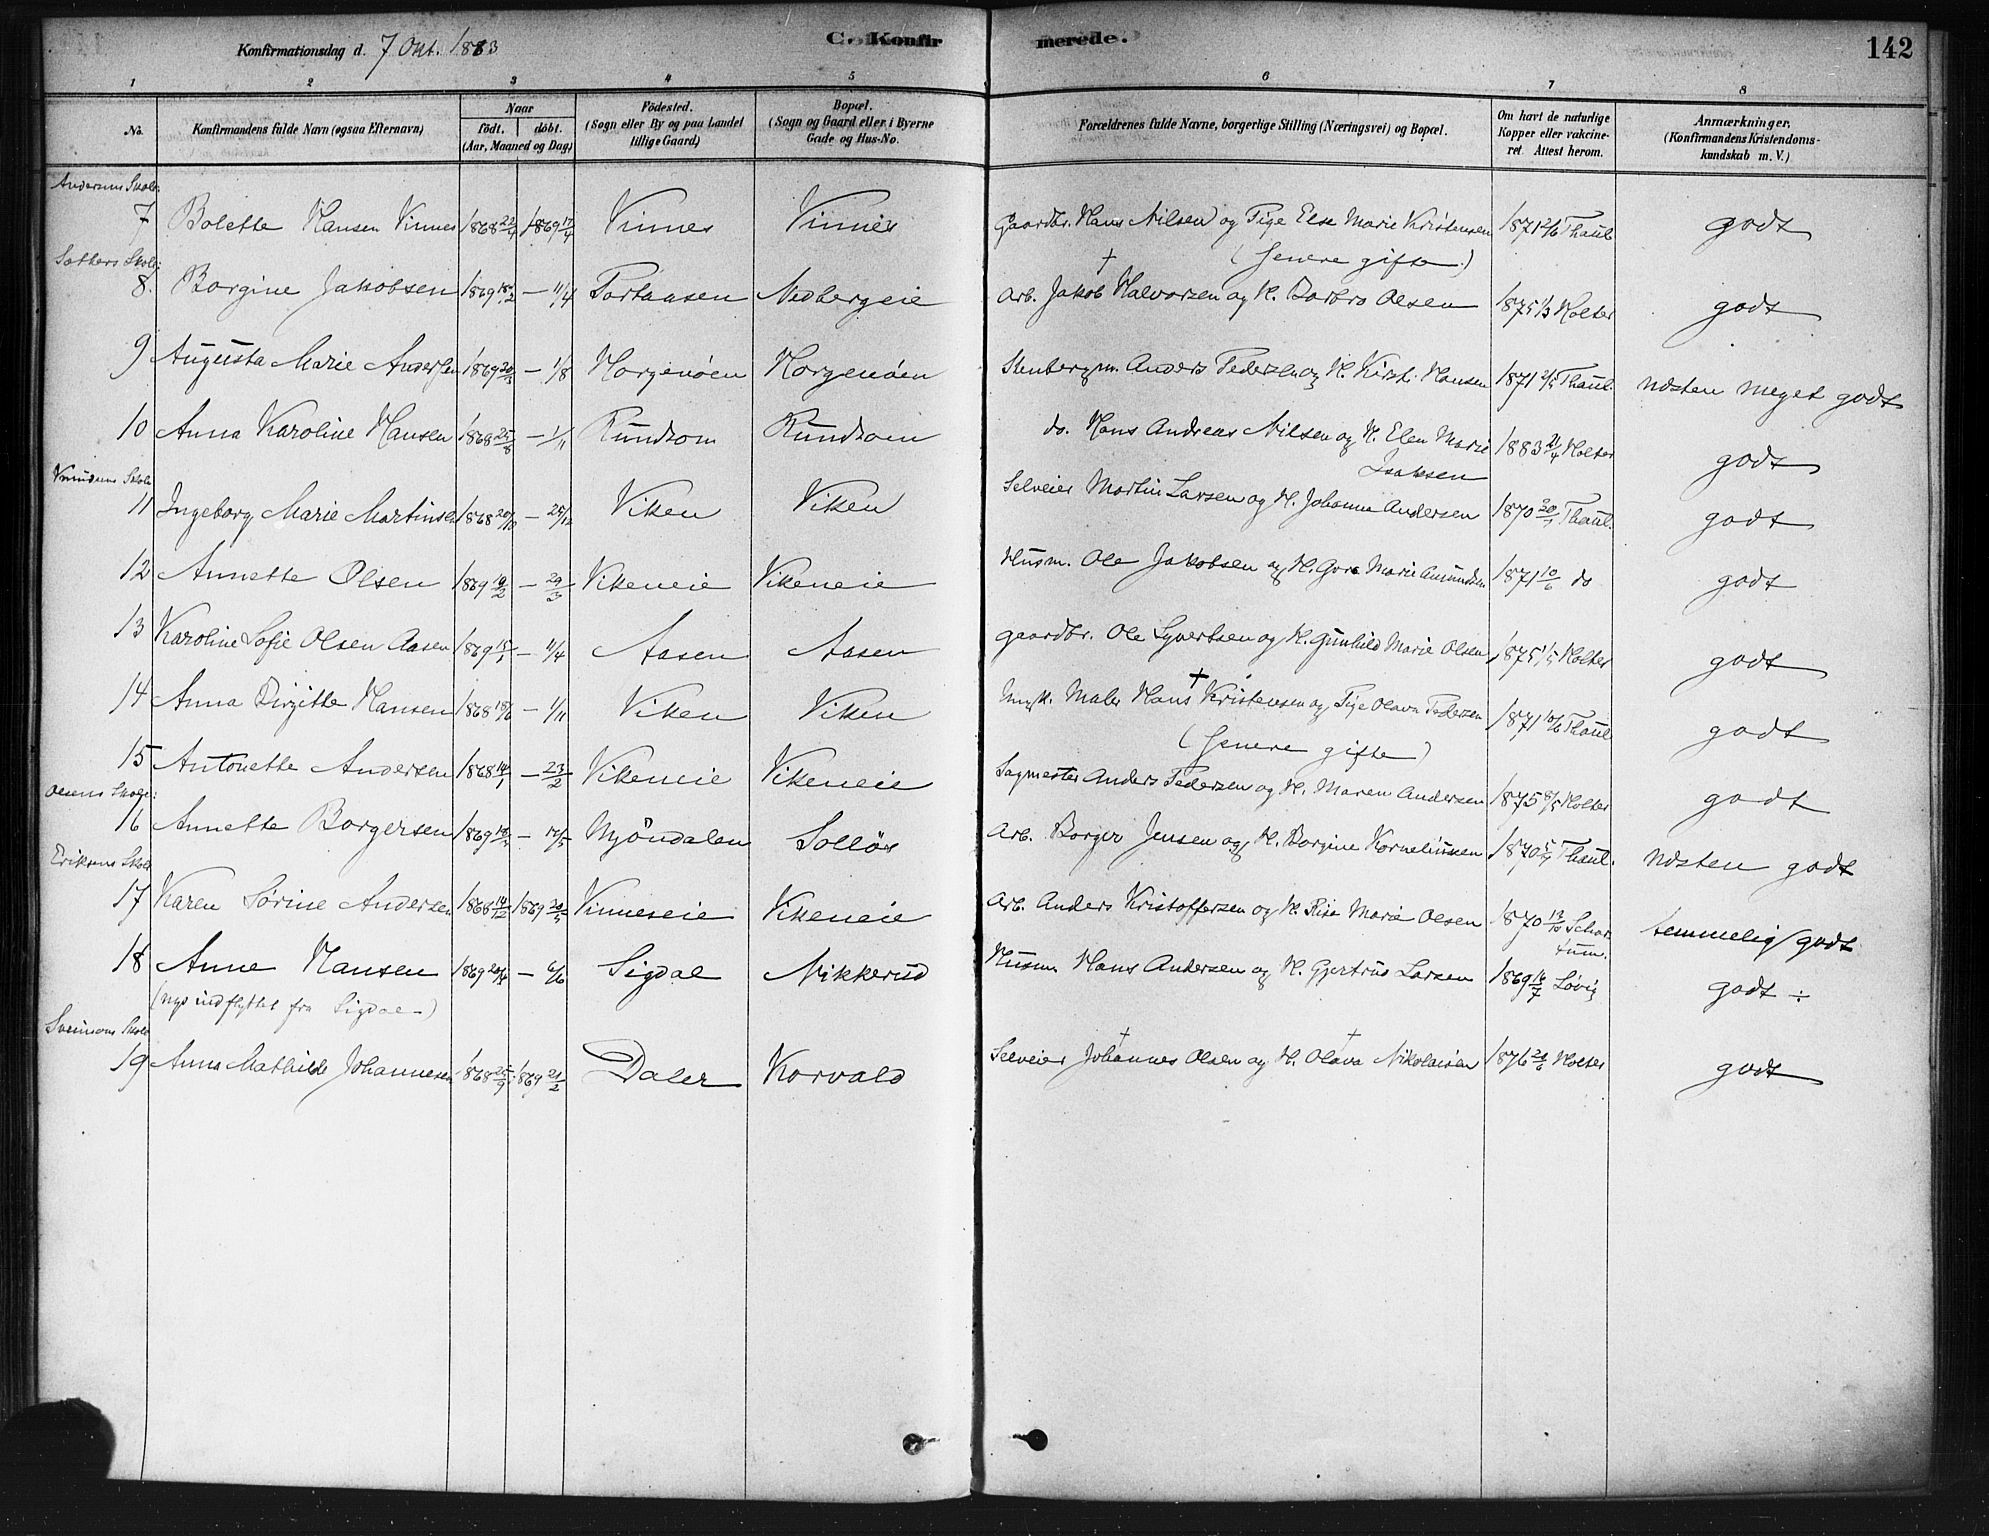 Konfirmationsdag d. 7 Okt. 1883
C. Konfirmerede.
142
1 2 3 4 5 6 7 8
No.
Konfirmandens fulde Navn (ogsaa Efternavn)
Naar
födt. döbt.
(Aar, Maaned og Dag)
Födested.
(Sogn eller By og paa Landet
tillige Gaard)
Bopæl.
(Sogn og Gaard eller i Byerne
Gade og Hus-No.
Forældrenes fulde Navne, borgerlige Stilling (Næringsvei) og Bopæl.
Om havt de naturlige
Kopper eller vakcine-
ret. Attest herom.
Anmærkninger.
(Konfirmandens Kristendoms-
kundskab m. V.)
Andersens Skole:
7 Bolette Hansen Vinnes 1868 22/4 1869 17/4 Vinnes Vinnes Gaardbr. Hans Nilsen og Pige Else Marie Kristensen 1871 2/6 Thaul. godt
(senere gifte.)
Sathers Skole:
8. Borgine Jakobsen 1869 18/2 — 11/4 Portaasen Nedbergeie Arb. † Jakob Halvorsen og H. Barbro Olsen 1875 1/3 Holter godt
9 Augusta Marie Andersen 1869 20/3 — 1/8 Horgenöen Horgenöen Stenbergm. Anders Pedersen og H. Kirsti Hansen 1871 2/5 Thaul. næsten meget godt
10 Anna Karoline Hansen 1868 25/8 — 1/11 Rundtom Rundtom do. Hans Andreas Nilsen og H. Elen Marie 1883 21/4 Holter godt
Isaksen
Knudsens Skole
11 Ingeborg Marie Martinsen 1868 20/10 — 25/12 Viken Viken Selveier Martin Larsen og H. Johanne Andersen 1870 20/1 Thaul. godt
12 Annette Olsen 1869 10/2 — 29/3 Vikeneie Vikeneie Husm. Ole Jakobsen og H. Gora Marie Amundsen 1871 10/6 do godt
13 Karoline Sofie Olsen Aasen 1869 15/1 — 11/4 Aasen Aasen gaardbr. Ole Syvertsen og H. Gunhild Marie Olsen 1875 1/5 Holter godt
14 Anna Birgitte Hansen 1868 18/6 — 1/11 Viken Viken Ungk. Maler † Hans Kristensen og Pige Olava Pedersen 1871 10/6 Thaul godt
(senere gifte)
15 Antonette Andersen 1868 14/1 — 23/2 Vikeneie Vikeneie Sagmester Anders Pedersen og H. Maren Andersen 1875 8/5 Holter godt
Olsens Skole:
16 Annette Borgersen — Mjöndalen Solløs Arb. Borger Jensen og H. Borgine Korneliussen 1870 Thaul. næsten godt
Eriksens Skole
17 Karen Sørine Andersen 1868 14/12 1869 20/5 Vinneseie Vikeneie Arb. Anders Kristoffersen og H. Risa Marie Olsen 1870 13/10 Schar- temmelig godt
tum.
18 Anne Hansen 1869 20/4 — 6/6 Sigdal Nikkerud Husm. Hans Andersen og H. Gjertrud Larsen 1869 16/7 Løvig godt ÷
(nys indflyttet fra Sigdal—)
Svensens Skole
19 Anna Mathilde Johannesen 1868 25/9 1869 21/2 Daler Korvald Selveier † Johannes Olsen og H. † Olava Nikolaisen 1876 24/6 Holter godt